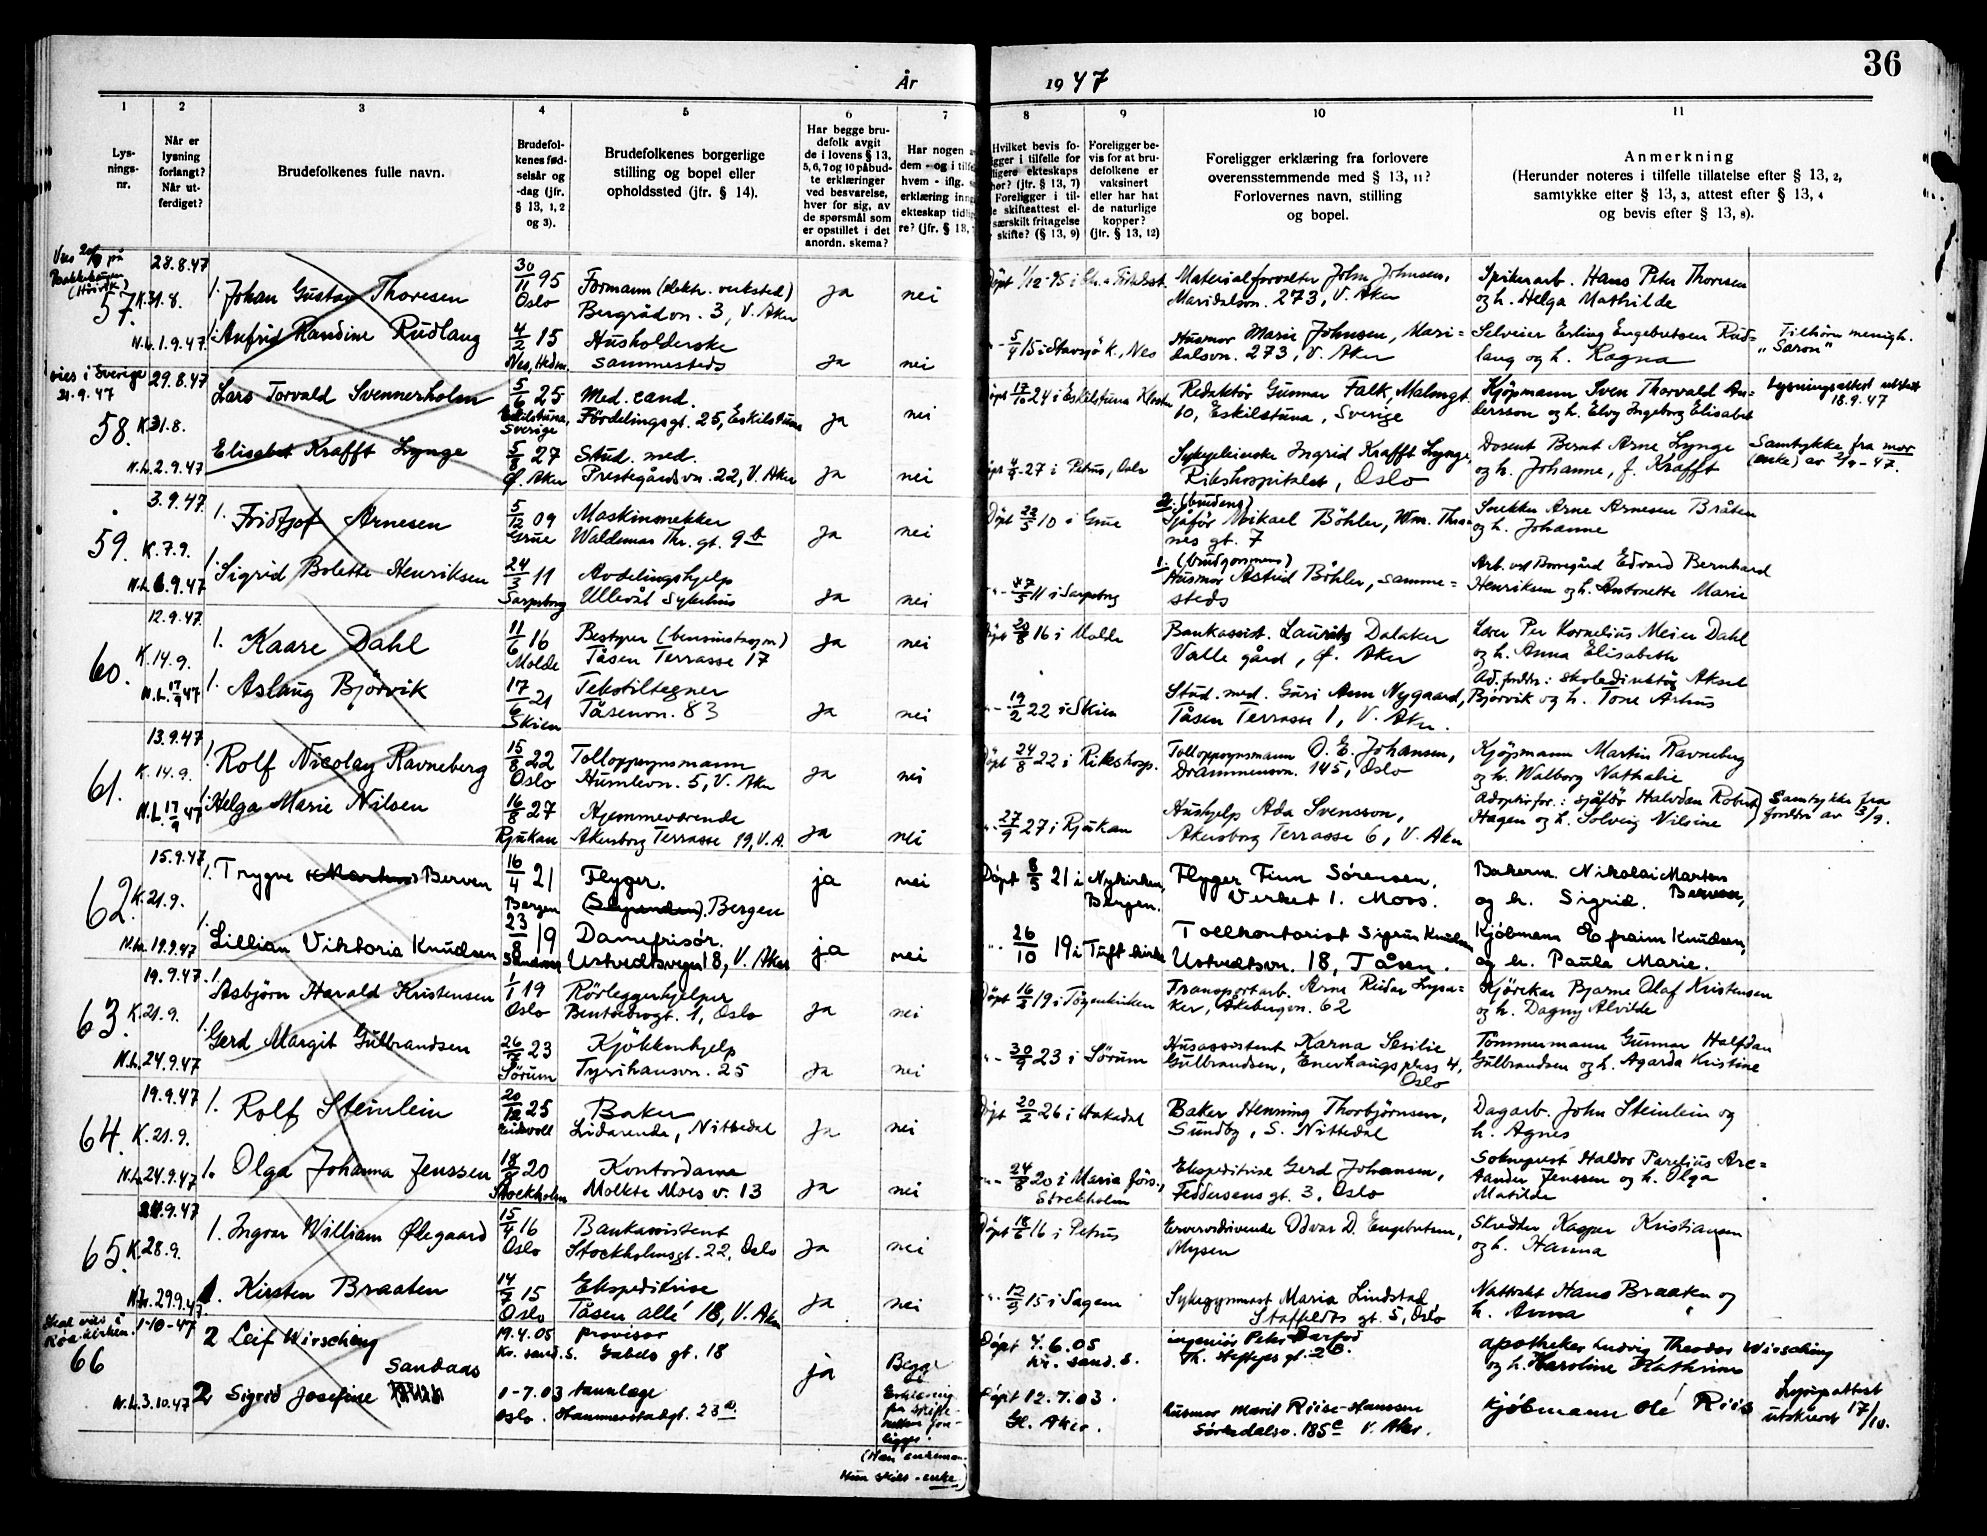 36
År 1947
1 2 3 4 5 6 7 8 9 10 11
Lys-
nings-
nr.
Når er
lysning
forlangt?
Når ut-
ferdiget?
Brudefolkenes fulle navn.
Brudefol-
kenes fød-
selsår og
-dag (jfr.
§ 13, 1, 2
og 3).
Brudefolkenes borgerlige
stilling og bopel eller
opholdssted (jfr. § 14).
Har begge bru-
defolk avgit
de i lovens § 13,
5, 6, 7 og 10 påbud-
te erklæringer
ved besvarelse,
hver for sig, av
de spørsmål som
er opstillet i det
anordn. skema?
Har nogen
dem - og i tilfe
hvem - iflg.
erklæring inng
ekteskap tidlig
re? (jfr. § 13,
Hvilket bevis fo-
igger i tilfelle for
ligere ekteskaps
hør? (jfr. § 13, 7)
Foreligger i til-
le skifteattest el-
særskilt fritagelse
skifte? (§ 13, 9)
Foreligger be-
vis for at bru-
defolkene er
vaksinert
eller har hat
de naturlige
kopper?
(jfr. § 13, 12)
Foreligger erklæring fra forlovere
overensstemmende med § 13, 11?
Forlovernes navn, stilling
og bopel.
Anmerkning
(Herunder noteres i tilfelle tillatelse efter § 13, 2,
samtykke efter § 13, 3, attest efter § 13, 4
og bevis efter § 13, 8).
57. 28.8.47 K.31.8. N.L.1.9.47
1. Johan Gustav Thoresen 30/11 95 Oslo Formann (elektr. verksted) Bergrådvn. 3, V. Aker ja nei
Materialforvalter John Johnsen, Maridalsvn. 273, V. Aker
Spikerarb. Hans Peter Thoresen og h. Helga Mathilde
1. Anfrid Randine Rudlang 4/2 15 Nes, Hedm. Husholderske sammesteds ja nei
5/4 15 i Stavsjø k., Nes Husmor Marie Johnsen, Mari-
dalsvn. 273, V. Aker
Selveier Erling Engebretsen Rud-
lang og h. Ragna Tilhører menigh. "Saron"
vies i Sverige 21.9.47
58. 29.8.47 K.31.8. N.L.2.9.47
Lars Torvald Svennerholm 5/6 25 Eskilstuna, Sverige Med. cand. Fördelingsgt. 25, Eskilstuna ja nei
døpt 17/10 24 i Eskilstuna Kloster Redaktør Gunnar Falk, Malmgt. 10, Eskilstuna, Sverige
Kjøpmann Sven Thorvald An-
dersson og h. Elvy Ingeborg Elisabet Lysningsattest utstedt 18.9.47
Elisabet Krafft Lynge 5/8 27 Ø. Aker Stud. med. Prestegårdsvn. 22, V. Aker ja nei
27 i Petrus, Oslo Sykepleierske Ingrid Krafft Lynge, Rikshospitalet, Oslo
Dosent Bernt Arne Lynge og h. Johanne, f. Krafft Samtykke fra mor (enke) av 2/9-47.
59. 3.9.47 K.7.9. N.L.6.9.47
1. Fridtjof Arnesen 5/12 09 Grue Maskinsnekker Waldemar Thr. gt. 9b ja nei
Døpt 28/3 10 i Grue 2. (brudens) Sjåfør Mikael Böhler, Wm. Thra-
nes gt. 7
Snekker Arne Arnesen Bråten og h. Johanne
1. Sigrid Bolette Henriksen 24/3 11 Sarpsborg Avdelingshjelp Ullevål Sykehus ja nei
11 i Sarpsborg 1. (brudgommens) Husmor Astrid Böhler, samme-
steds
Arb. ved Borregård Edvard Bernhard Henriksen og h. Antonette Marie
60. 12.9.47 K.14.9. N.L.17/9 47
1. Kaare Dahl 11/6 16 Molde Bestyrer (bensinstasjon) Tåsen Terrasse 17 ja nei
døpt 20/8 16 i Molde Bankassist. Laurits Dalaker Valle gård, Ø. Aker
Lærer Per Kornelius Meier Dahl og h. Anna Elisabeth
1. Aslaug Bjørvik 17/6 21 Skien Tekstiltegner Tåsenvn. 83 ja nei
19/2 22 i Skien Stud. med. Guri Ann Nygaard, Tåsen Terrasse 1, V. Aker.
Ad. foreldre: skoledirektør Aksel Bjørvik og h. Tone Århus
61. 13.9.47 K.14.9. N.L.17/9 47
1. Rolf Nicolay Ravneberg 15/8 22 Oslo Tolloppsynsmann Humlevn. 5, V. Aker ja nei
Døpt 24/8 22 i Rikshosp. Tolloppsynsmann O. E. Johansen, Drammensvn. 145, Oslo
Kjøpmann Martin Ravneberg og h. Walborg Nathalie
1. Helga Marie Nilsen 16/8 27 Rjukan Hjemmeværende Akersborg Terrasse 19, V.A. ja nei
27/9 27 i Rjukan Hushjelp Ada Svensson, Akersborg Terrasse 6, V. Aker
Adoptivfor.: sjåfør Halvdan Robert Hagen og h. Solveig Nilsine Samtykke fra foreldre av 3/9.
62. 15.9.47 K.21.9. N.L.19.9.47
1. Trygve Berven 16/4 21 Bergen Flyger. Bergen ja nei
Døpt 8/5 21 i Nykirken, Bergen. Flyger Finn Sørensen, Verket 1. Moss.
Bakerm. Nikolai Martens Berven, og h. Sigrid.
1. Lillian Viktoria Knudsen 23/8 19 Damefrisør. Ustvedtsvegn 18, V. Aker ja nei
26/10 19 i Tuft kirke Tollkontorist Sigrun Knudsen Ustvedtsvn. 18, Tåsen.
Kjøbmann Efraim Knudsen, og h. Paula Marie.
63. 19.9.47 K.21.9. N.L.24.9.47
1. Asbjørn Harald Kristensen 1/1 19 Oslo Rørleggerhjelper Bentsebrogt. 1, Oslo ja nei
Døpt 19 i Tøyenkirken Transportarb. Arne Reidar Lysa-
ker, Åkebergvn. 62
Kjørekar Bjarne Olaf Kristensen og h. Dagny Alvilde
1. Gerd Margit Gulbrandsen 23 Sørum Kjøkkenhjelp Tyrihansvn. 25 ja nei
30/9 23 i Sørum Husassistent Karna Sesilie Gulbrandsen, Enerhaugsplass 4, Oslo
Tømmermann Gunnar Halfdan Gulbrandsen og h. Agarda Kristine
64. 19.9.47 K.21.9. N.L.24.9.47
1. Rolf Steinlein 20/12 25 Eidsvoll Baker Lidarende, Nittedal ja nei
Døpt 20/2 26 i Hakadal Baker Henning Thorbjørnsen, Sundby, S. Nittedal
Dagarb. John Steinlein og h. Agnes
1. Olga Johanna Jenssen 20 Stockholm Kontordame Moltke Moes v. 13 ja nei
24/8 20 i Maria förs., Stockholm Ekspeditrise Gerd Johansen, Feddersens gt. 3, Oslo
Sokneprest Haldor Parelius Are-
tander Jenssen og h. Olga Matilde
65. 9.47 K.28.9. 29.9.47
1. Ingvar William Ødegaard 15/4 16 Oslo Bankassistent Stockholmsgt. 22, Oslo ja nei
Døpt 18/6 16 i Petrus Ervervsdrivende Odvar D. Engebretsen, Mysen
Skredder Kasper Kristiansen og h. Hanna
1. Kirsten Braaten 14/7 15 Oslo Ekspeditrise Tåsen allé 18, V. Aker ja nei
12/9 15 i Sagene Sykegymnast Maria Lindstad Staffeldts gt. 5, Oslo
Nattvakt Hans Braaten og h. Anna
Skal vies i Røa kirken.
66 1-10-47 N.L.3.10.47
2 Leif Wirsching 19.4.05 Kr. sand. S. provisor Gabels gt. 18 ja
Døpt 4.6.05 Kr. sand. S. ingeniør Peter Barfod Th. Heftyes gt. 2B.
apotheker Ludvig Theodor Wirsching og h. Karoline Kathrine
2 Sigrid Josefine Sandaas -7.03 Oslo. tannlæge Hammerstadgt. 23a
Døpt 12.7.03. V. Aker. husmor Marit Riise-Hanssen Sørkedalsv. 185c V. Aker.
kjøbmann Ole Riis Lysn. attest utskrevet 17/10.
Begge
Erklæring